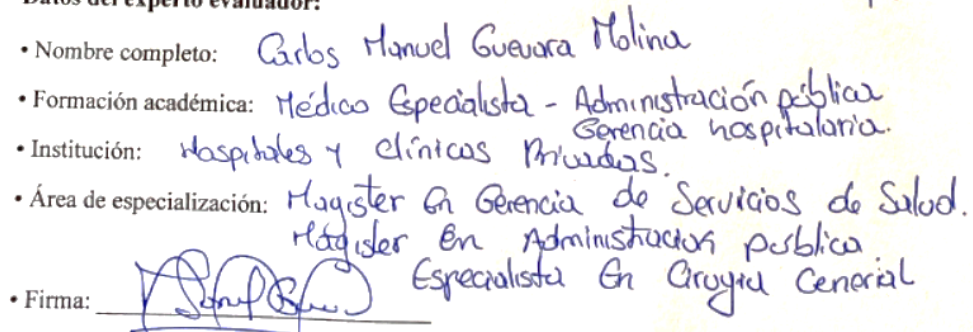 Datos del experto evaluador:
• Nombre completo: Carlos Manuel Guevara Molina
• Formación académica: Médico Especialista - Administración pública
Gerencia hospitalaria.
• Institución: Hospitales y clínicas Privadas.
• Área de especialización: Magister En Gerencia de Servicios de Salud.
Mágister en Administración pública.
Especialista En Cirugía General
• Firma: